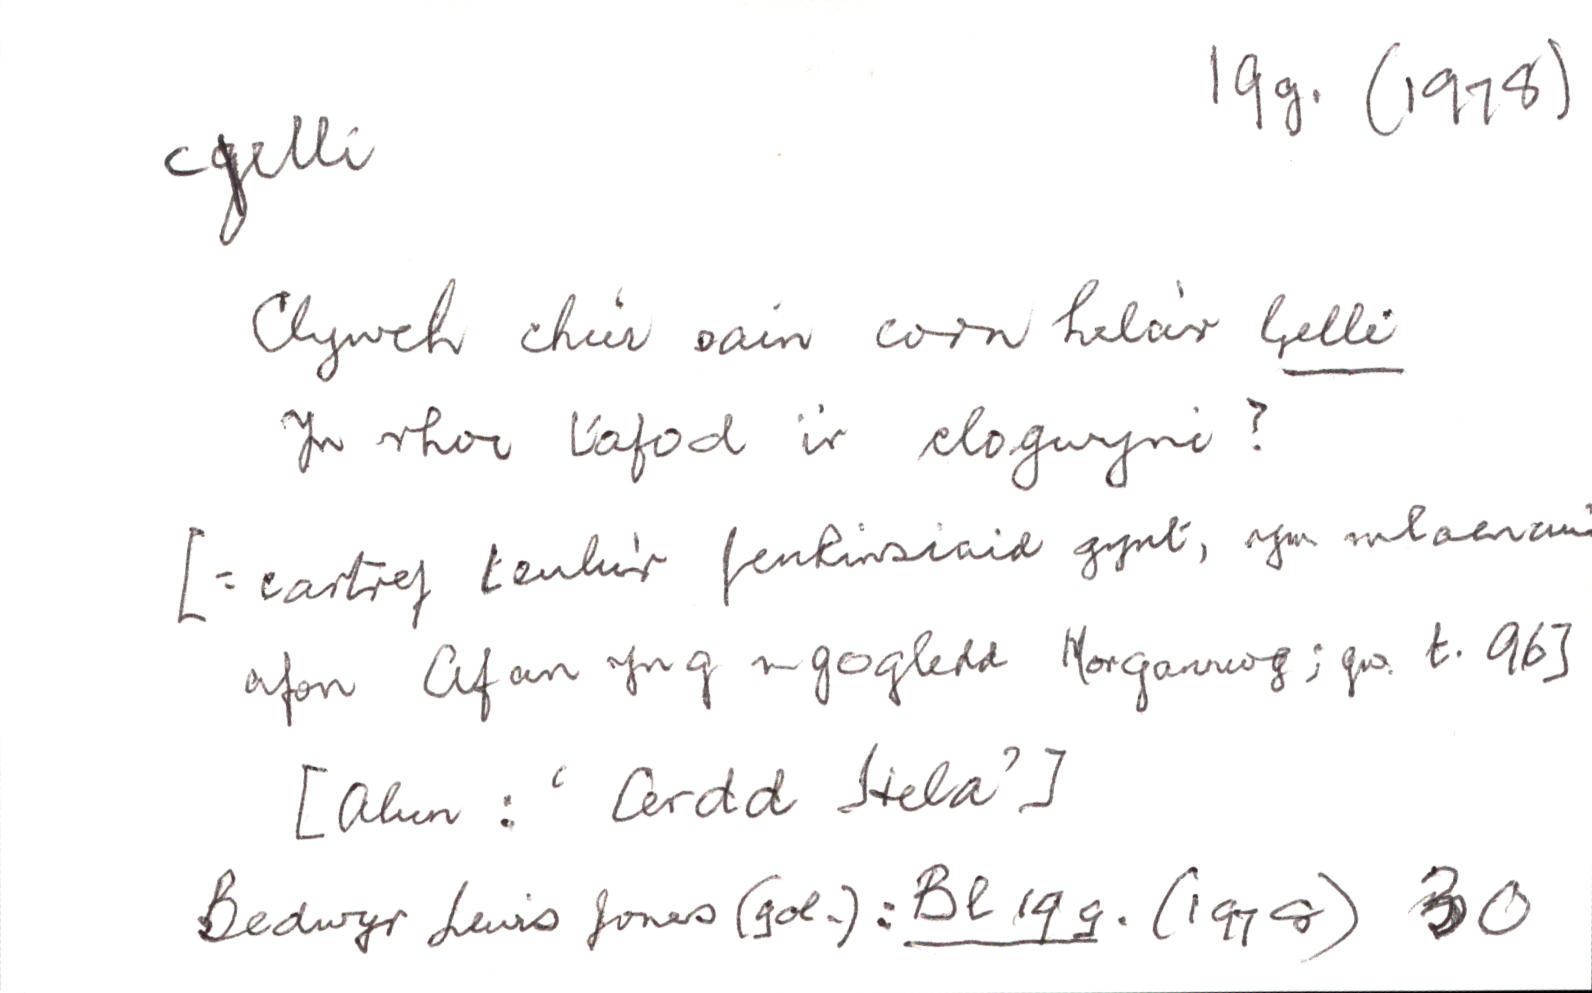 19g. (1978)
cgelli
Clywch chi'r sain corn hela'r Gelli
Yn rhoi tafod i'r clogwyni?
[= cartref teulu'r Jenkinsiaid gynt, ym mlaenau
afon Afan yng ngogledd Morgannwg; gw. t. 96]
[Alun : 'Cerdd Hela']
Bedwyr Lewis Jones (gol.) : Bl 19g. (1978) 30